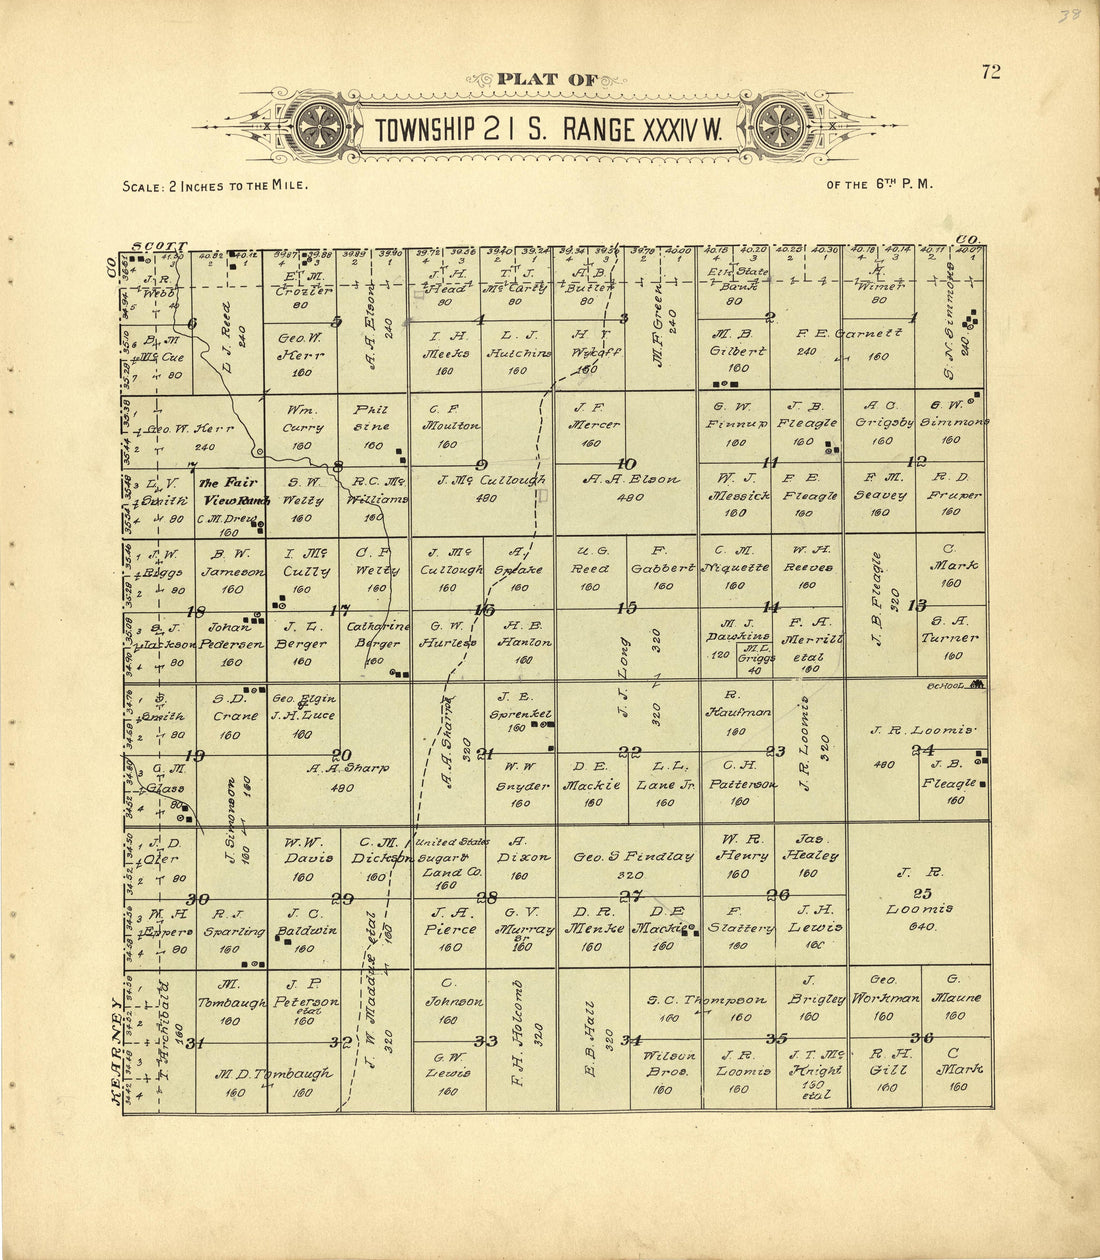 38
72
PLAT OF
TOWNSHIP 21 S. RANGE XXXIV W.
SCALE: 2 INCHES TO THE MILE.
OF THE 6TH P. M.
SCOTT
CO.
CO
KEARNEY
J. R.
Webb
40
L J. Reed
240
E. M.
Crozier
80
A. A. Elson
240
J. H.
Head
80
T. J.
McCarty
80
A. B.
Butler
80
M. F. Green
240
Elk State
Bank
80
H.
Wimer
80
S. N. Simmons
240
6
5
4
3
2
1
B. M
McCue
80
Geo. W.
Kerr
160
I. H.
Meeks
160
L. J.
Hutchins
160
H Y
Wykoff
160
M. B.
Gilbert
160
F. E. Garnett
240
160
Geo. W. Kerr
240
Wm.
Curry
160
Phil
Sine
160
C. F.
Moulton
160
J. F.
Mercer
160
G. W.
Finnup
160
J. B.
Fleagle
160
A. C.
Grigsby
160
S. W.
Simmons
160
7
8
9
10
11
12
L. V.
Smith
80
The Fair
View Ranch
C. M. Drew
160
S. W.
Welty
160
R. C. Mc
Williams
160
J. Mc Cullough
480
A. A. Elson
480
W. J.
Messick
160
F. E.
Fleagle
160
F. M.
Seavey
160
R. D.
Fruper
160
J. W.
Riggs
80
B. W.
Jameson
160
I. Mc
Cully
160
C. F
Welty
160
J. Mc
Cullough
160
A.
Speake
160
U. G.
Reed
160
F.
Gabbert
160
C. M.
Niquette
160
W. H.
Reeves
160
J. B. Fleagle
320
C.
Mark
160
18
17
16
15
14
13
S. J.
Jackson
80
Johan
Pedersen
160
J. L.
Berger
160
Catharine
Berger
160
G. W.
Hurless
160
H. E.
Hanlon
160
J. J. Long
320
320
M. J.
Dawkins
120
M. L.
Griggs
40
F. A.
Merrill
etal
160
S. A.
Turner
160
S.
Smith
80
S. D.
Crane
160
Geo. Elgin
&
J. H. Luce
160
A. A. Sharpe
320
J. E.
Sprenkel
160
R.
Kaufman
160
J. R. Loomis
320
SCHOOL
J. R. Loomis
480
19
20
21
22
23
24
G. M.
Glass
80
J. Simonson
160
160
A. A. Sharp
480
W. W
Snyder
160
D. E.
Mackie
160
L. L.
Lane Jr.
160
C. H.
Patterson
160
J. B.
Fleagle
160
J. D.
Oler
80
W. W.
Davis
160
C. M.
Dickson
160
United States
Sugar &
Land Co.
160
A.
Dixon
160
Geo. S Findlay
320
W. R.
Henry
160
Jas.
Healey
160
J. R.
Loomis
640.
30
29
28
27
26
25
M. H
Eppers
80
R. J.
Sparling
160
J. C.
Baldwin
160
J. W. Maddux etal
160
320
J. A.
Pierce
160
G. V.
Murray
Sr
160
D. R.
Menke
160
D. E
Mackie
160
F.
Slattery
160
J. H.
Lewis
160
T. Archibald
160
M.
Tombaugh
160
J. P.
Peterson
etal
160
C.
Johnson
160
F. H. Holcomb
320
E. B. Hall
320
S. C. Thompson
160
160
J.
Brigley
160
Geo.
Workman
160
G.
Maune
160
31
32
33
34
35
36
M. D. Tombaugh
160
160
G. W.
Lewis
160
Wilson
Bros.
160
J. R.
Loomis
160
J. T. Mc
Knight
160
etal
R. H.
Gill
160
C
Mark
160